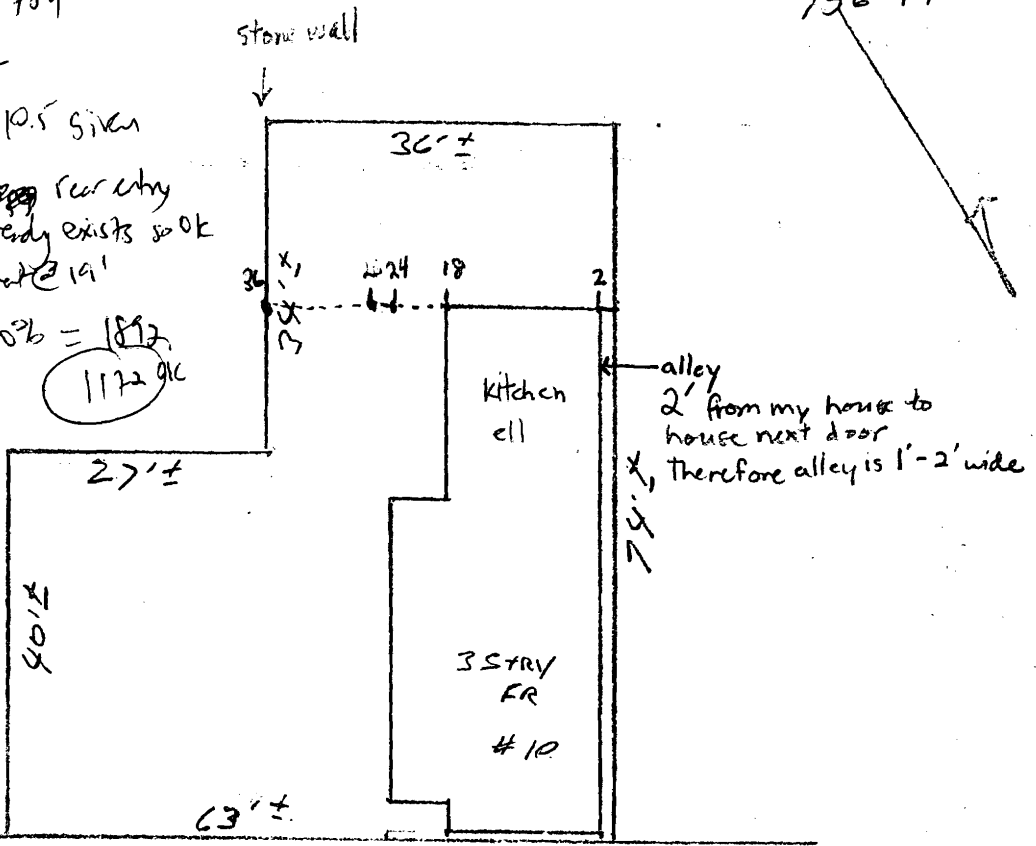 stone wall
10.5 given
rear entry
exists so ok
@ 19'
= 1892
1172 ok
36'±
36
34'±
24
18
2
kitchen
ell
alley
2' from my house to
house next door
therefore alley is 1'-2' wide
27'±
74'±
40'±
3 STRY
FR
# 10
63'±